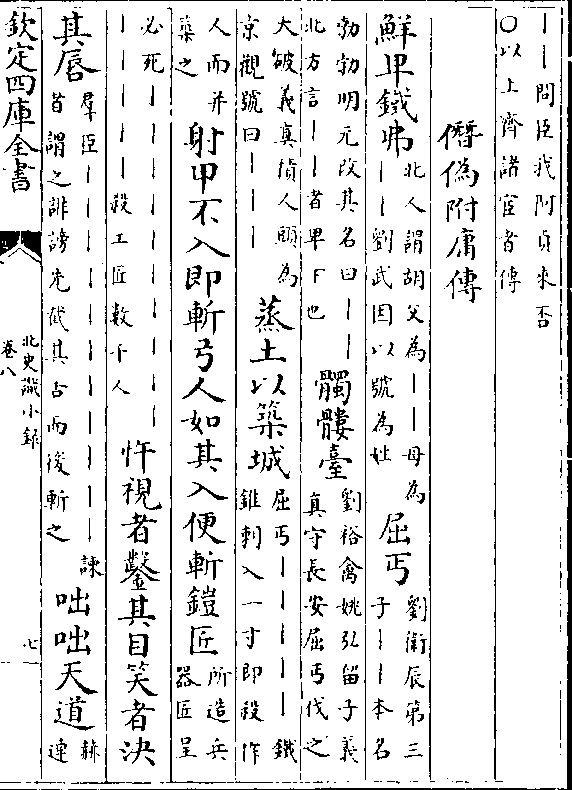 丨丨問臣我阿貞來否
○以上齊諸宦者傳
僭偽附庸傳
鮮卑鐵弗
北人謂胡父為丨丨母為
丨丨劉武因以號為姓
屈丐
劉衛辰第三
子丨丨本名
勃勃明元改其名曰丨丨
北方言丨丨者卑下也
髑髏臺
劉裕禽姚泓留子義
真守長安屈丐伐之
大破義真積人頭為
京觀號曰丨丨丨
蒸土以築城
屈丐丨丨丨丨丨鐵
錐刺入一寸即殺作
人而并
築之
射甲不入即斬弓人如其入便斬鎧匠
所造兵
器匠呈
必死丨丨丨丨丨丨丨丨丨丨丨
丨丨丨丨殺工匠數千人
忤視者鑿其目笑者決
其唇
羣臣丨丨丨丨丨丨丨丨丨丨丨諫
者謂之誹謗先截其舌而後斬之
咄咄天道
赫
連
欽定四庫全書
北史識小録
卷八
七